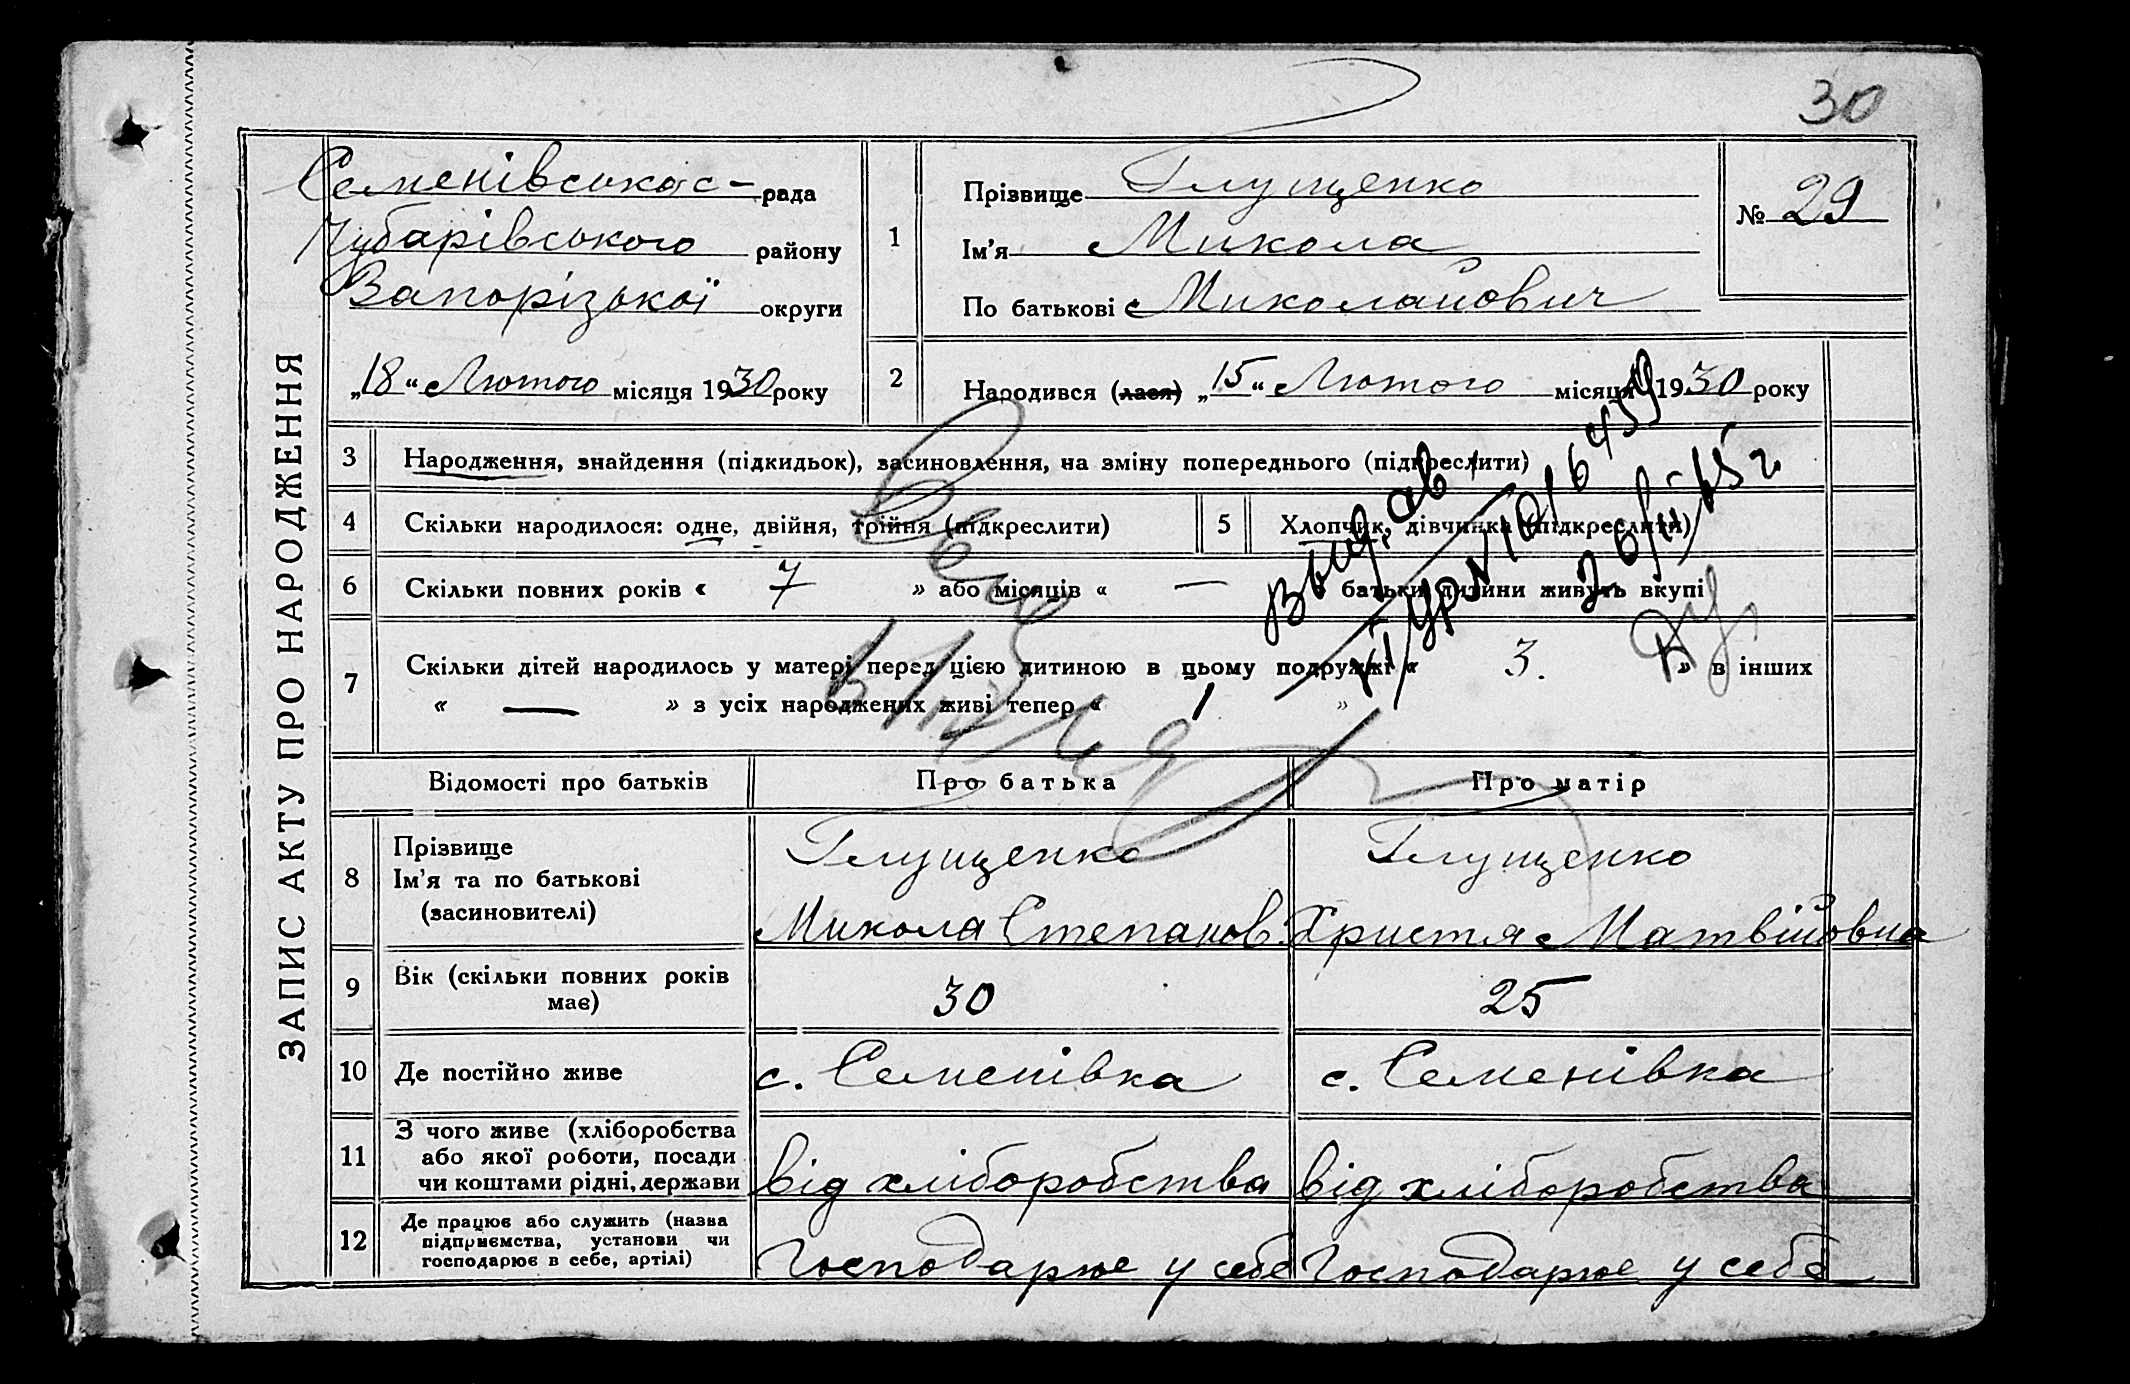 30
Семенівська с- рада
Чубарівського району
Запорізької округи
„18“ Лютого місяця 1930 року
1
Прізвище Глущенко
Ім’я Микола
По батькові Миколайович
№ 29
2
Народився (лася) „15“ Лютого місяця 1930 року
ЗАПИС АКТУ ПРО НАРОДЖЕННЯ
3 Народження, знайдення (підкидьок), засиновлення, на зміну попереднього (підкреслити)
4 Скільки народилося: одне, двійня, трійня (підкреслити)
5 Хлопчик, дівчинка (підкреслити)
6 Скільки повних років « 7 » або місяців « — батьки дитини живуть вкупі
7 Скільки дітей народилось у матері перед цією дитиною в цьому подружжі « 3. » в інших
« — » з усіх народжених живі тепер « 1 »
Відомості про батьків Про батька Про матір
8 Прізвище
Ім’я та по батькові
(засиновителі)
Глущенко
Микола Степанов.
Глущенко
Христя Матвійовна
9 Вік (скільки повних років
має)
30
25
10 Де постійно живе
с. Семенівка
с. Семенівка
11 З чого живе (хліборобства
або якої роботи, посади
чи коштами рідні, держави
від хліборобства
від хліборобства
12 Де працює або служить (назва
підприємства, установи чи
господарює в себе, артілі)
Господарює у себе
Господарює у себе